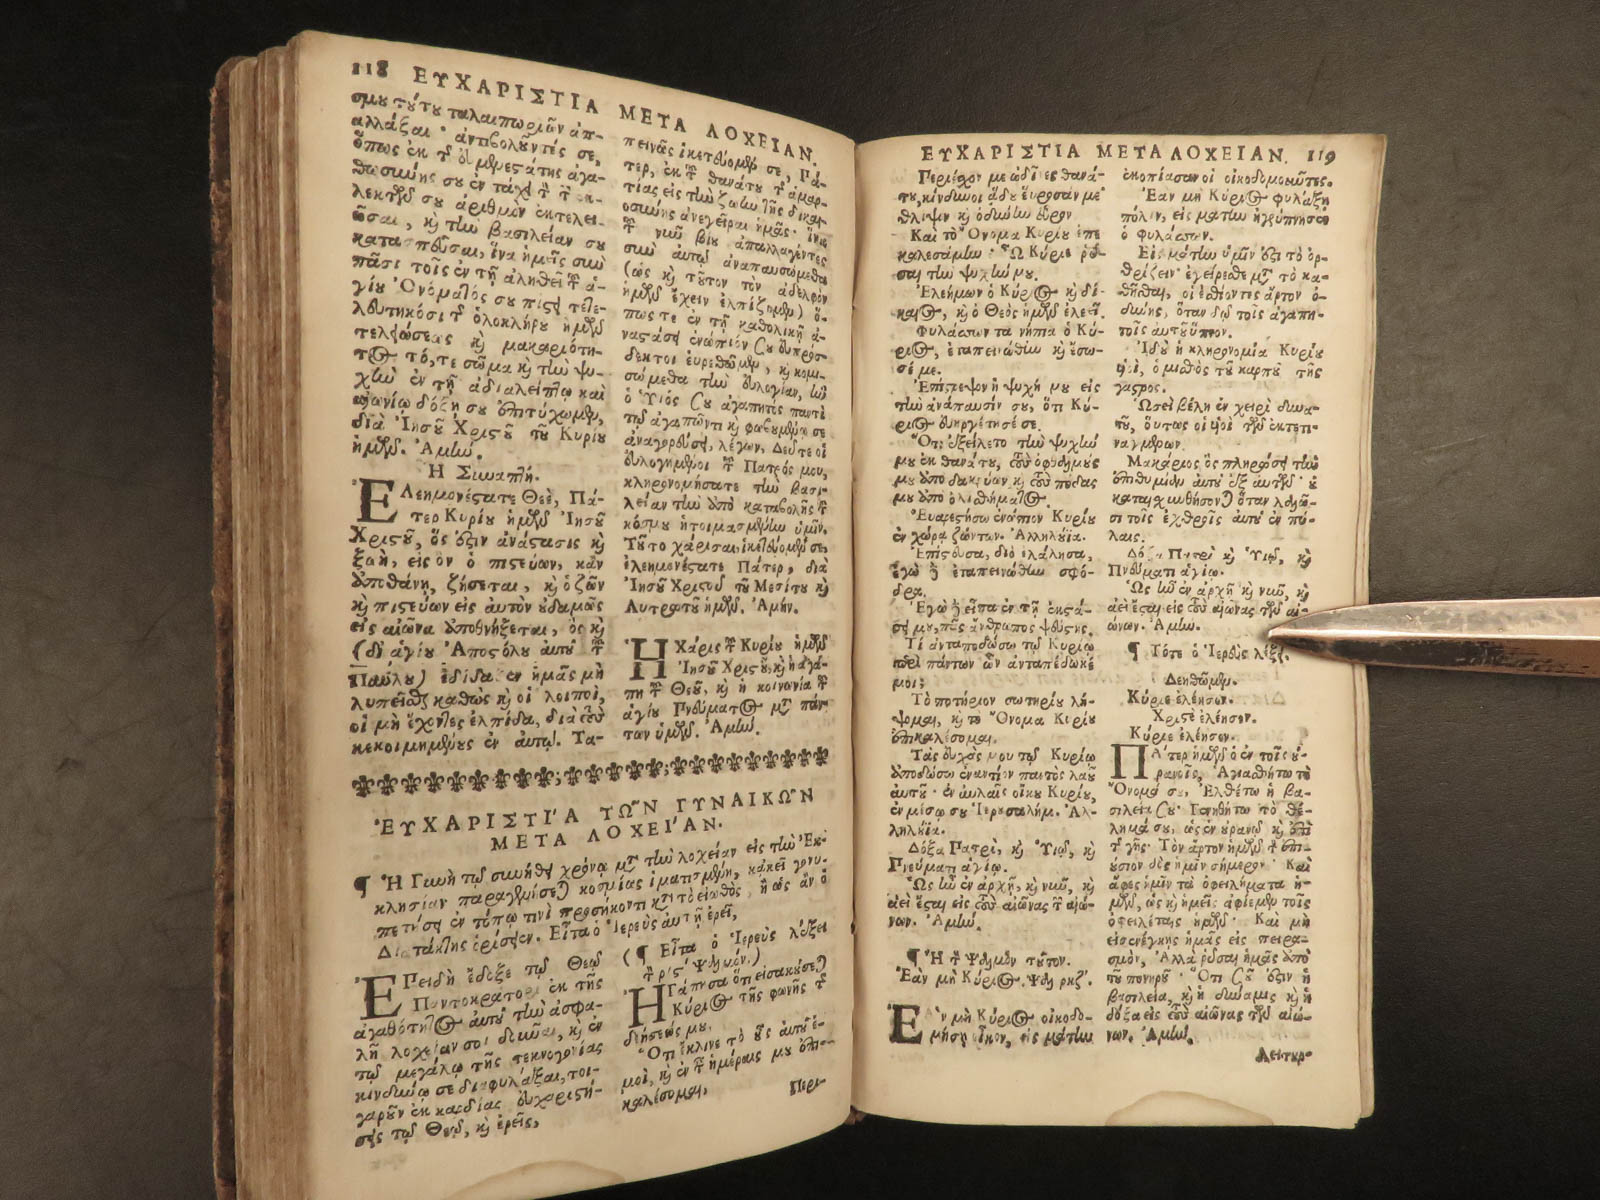 118 ΕΥΧΑΡΙΣΤΙΑ ΜΕΤΑ ΛΟΧΕΙΑΝ.
σμοῦ τούτου ταλαιπωριῶν ἀπ-
αλλάξαι· ἀντιβολοῦντές σε,
ὅπως ἐκ τῆς
θωσύνης σου ἐν τάχει τῶν ἐκ-
λεκτῶν σου ἀριθμὸν ἐκτελει-
ῶσαι, καὶ τὴν βασιλείαν σου
κατασπεῦσαι, ἵνα ἡμεῖς σὺν
πᾶσι τοῖς ἐν τῇ ἀληθεῖ τοῦ ἁ-
γίου Ὀνόματός σου πίστει τετε-
λευτηκόσι τῆς ὁλοκλήρου ἡμῶν
τελειώσεως καὶ μακαριότη-
τος τό,τε σῶμα καὶ τὴν ψυ-
χὴν ἐν τῇ ἀδιαλείπτῳ καὶ
αἰωνίῳ δόξῃ σου ἐπιτύχωμεν,
διὰ Ἰησοῦ Χριστοῦ τοῦ Κυρίου
ἡμῶν. Ἀμήν.
Ἡ Συναπτή.
ΕΛεημονέστατε Θεὲ, Πά-
τερ Κυρίου ἡμῶν Ἰησοῦ
Χριστοῦ, ὅς ἐστιν ἀνάστασις καὶ
ζωὴ, εἰς ὃν ὁ πιστεύων, κἂν
ἀποθάνῃ, ζήσεται, καὶ ὁ ζῶν
καὶ πιστεύων εἰς αὐτὸν οὐδαμῶς
εἰς αἰῶνα ἀποθνήξεται, ὃς καὶ
(διὰ ἁγίου Ἀποστόλου αὐτοῦ τοῦ
Παύλου) ἐδίδαξεν ἡμᾶς μὴ
λυπεῖσθαι καθὼς καὶ οἱ λοιποὶ,
οἱ μὴ ἔχοντες ἐλπίδα, διὰ τοὺς
κεκοιμημένους ἐν αὐτῷ. Τα-
πεινῶς ἱκετεύομέν σε, Πά-
τερ, ἐκ τοῦ θανάτου τῆς ἁμαρ-
τίας εἰς τὴν ζωὴν τῆς δικαι-
οσύνης ἀνεγεῖραι ἡμᾶς· ἵνα
τοῦ νῦν βίου ἀπαλλαγέντες
σὺν αὐτῷ ἀναπαυσώμεθα
(ὡς καὶ τοῦτον τὸν ἀδελφὸν
ἡμῶν ἔχειν ἐλπίζομεν) ὅ-
πως τε ἐν τῇ καθολικῇ ἀ-
ναστάσει ἐνώπιόν Σου εὐπρόσ-
δεκτοι εὑρεθῶμεν, καὶ κομι-
σώμεθα τὴν εὐλογίαν, ἣν
ὁ Υἱός Σου ἀγαπητὸς παντὶ
τῷ ἀγαπῶντι καὶ φοβουμένῳ σε
ἀναγορεύσει, λέγων, Δεῦτε οἱ
εὐλογημένοι τοῦ Πατρός μου,
κληρονομήσατε τὴν βασι-
λείαν τὴν ἀπὸ καταβολῆς τοῦ
κόσμου ἡτοιμασμένην ὑμῖν.
Τοῦτο χάρισαι, ἱκετεύομέν σε,
ἐλεημονέστατε Πάτερ, διὰ
Ἰησοῦ Χριστοῦ τοῦ Μεσίτου καὶ
Λυτρωτοῦ ἡμῶν. Ἀμήν.
Η Χάρις τοῦ Κυρίου ἡμῶν
Ἰησοῦ Χριστοῦ, καὶ ἡ ἀγά-
πη τοῦ Θεοῦ, καὶ ἡ κοινωνία τοῦ
ἁγίου Πνεύματος μετὰ πάν-
των ὑμῶν. Ἀμήν.
ἘΥΧΑΡΙΣΤΙ´Α ΤΩ῀Ν ΓΥΝΑΙΚΩ῀Ν
ΜΕΤΑ ΛΟΧΕΙ´ΑΝ.
¶ Ἡ Γυνὴ τῷ συνήθει χρόνῳ μετὰ τὴν λοχείαν εἰς τὴν Ἐκ-
κλησίαν παραγενήσεται κοσμίας ἱματισμένη, κἀκεῖ γονυ-
πετήσει ἐν τόπῳ τινὶ προσήκοντι κατὰ τὸ εἰωθὸς, ἢ ὡς ἂν ὁ
Διατάκτης ὁρίσειεν. Εἶτα ὁ Ἱερεὺς αὐτῇ ἐρεῖ,
ἘΠειδὴ ἔδοξε τῷ Θεῷ
Παντοκράτορι ἐκ τῆς
ἀγαθότητος αὐτοῦ τὴν ἀσφα-
λῆ λοχείαν σοι δοῦναι, καὶ ἐν
τῷ μεγάλῳ τῆς τεκνογονίας
κινδύνῳ σε διαφυλάξαι, τοι-
γαροῦν ἐκ καρδίας εὐχαριστή-
σεις τῷ Θεῷ, καὶ ἐρεῖς,
(¶ Εἶτα ὁ Ἱερεὺς λέξει
τὸν ριϛ´ Ψαλμόν.)
ἩΓάπησα ὅτι εἰσακούσεται
Κύριος τῆς φωνῆς τῆς
δεήσεώς μου.
Ὅτι ἔκλινε τὸ οὖς αὐτοῦ ἐ-
μοὶ, καὶ ἐν ταῖς ἡμέραις μου ἐπι-
καλέσομαι,
Περι-
ΕΥΧΑΡΙΣΤΙΑ ΜΕΤΑ ΛΟΧΕΙΑΝ. 119
Περιέσχον με ὠδῖνες θανά-
του, κίνδυνοι ᾅδου εὕροσάν με·
θλίψιν καὶ ὀδύνην εὗρον.
Καὶ τὸ Ὄνομα Κυρίου ἐπε-
καλεσάμην· Ὦ Κύριε ῥῦ-
σαι τὴν ψυχήν μου.
Ἐλεήμων ὁ Κύριος καὶ δί-
καιος, καὶ ὁ Θεὸς ἡμῶν ἐλεεῖ.
Φυλάσσων τὰ νήπια ὁ Κύ-
ριος, ἐταπεινώθην καὶ ἔσω-
σέ με.
Ἐπίστρεψον ἡ ψυχή μου εἰς
τὴν ἀνάπαυσίν σου, ὅτι Κύ-
ριος εὐηργέτησέ σε.
Ὅτι ἐξείλετο τὴν ψυχήν
μου ἐκ θανάτου, τοὺς ὀφθαλμούς
μου ἀπὸ δακρύων, καὶ τοὺς πόδας
μου ἀπὸ ὀλισθήματος.
Εὐαρεστήσω ἐνώπιον Κυρίου
ἐν χώρᾳ ζώντων. Ἀλληλούϊα.
Ἐπίστευσα, διὸ ἐλάλησα,
ἐγὼ δὲ ἐταπεινώθην σφό-
δρα.
Ἐγὼ δὲ εἶπα ἐν τῇ ἐκστά-
σει μου, πᾶς ἄνθρωπος ψεύστης.
Τί ἀνταποδώσω τῷ Κυρίῳ
περὶ πάντων ὧν ἀνταπέδωκέ
μοι;
Τὸ ποτήριον σωτηρίου λή-
ψομαι, καὶ τὸ Ὄνομα Κυρίου
ἐπικαλέσομαι.
Τὰς εὐχάς μου τῷ Κυρίῳ
ἀποδώσω ἐναντίον παντὸς λαοῦ
αὐτοῦ· ἐν αὐλαῖς οἴκου Κυρίου,
ἐν μέσῳ σου Ἱερουσαλήμ. Ἀλ-
ληλούϊα.
Δόξα Πατρὶ, καὶ Υἱῷ, καὶ
Πνεύματι ἁγίῳ.
Ὡς ἦν ἐν ἀρχῇ, καὶ νῦν, καὶ
ἀεὶ ἔσται εἰς τοὺς αἰῶνας τῶν αἰώ-
νων. Ἀμήν.
¶ Ἢ τὸν Ψαλμὸν τοῦτον.
Ἐὰν μὴ Κύριος. Ψαλ. ρκζ´.
ἘΑν μὴ Κύριος οἰκοδο-
μήσῃ οἶκον, εἰς μάτην
ἐκοπίασαν οἱ οἰκοδομοῦντες.
Ἐὰν μὴ Κύριος φυλάξῃ
πόλιν, εἰς μάτην ἠγρύπνησεν
ὁ φυλάσσων.
Εἰς μάτην ὑμῖν ἐστι τὸ ὀρ-
θρίζειν· ἐγείρεσθε μετὰ τὸ κα-
θῆσθαι, οἱ ἐσθίοντες ἄρτον ὀ-
δύνης, ὅταν δῷ τοῖς ἀγαπη-
τοῖς αὐτοῦ ὕπνον.
Ἰδοὺ ἡ κληρονομία Κυρίου
υἱοὶ, ὁ μισθὸς τοῦ καρποῦ τῆς
γαστρός.
Ὡσεὶ βέλη ἐν χειρὶ δυνα-
τοῦ, οὕτως οἱ υἱοὶ τῶν ἐκτετι-
ναγμένων.
Μακάριος ὃς πληρώσει τὴν
ἐπιθυμίαν αὐτοῦ ἐξ αὐτῶν· οὐ
καταισχυνθήσονται ὅταν λαλῶ-
σι τοῖς ἐχθροῖς αὐτοῦ ἐν πύ-
λαις.
Δόξα Πατρὶ καὶ Υἱῷ, καὶ
Πνεύματι ἁγίῳ.
Ὡς ἦν ἐν ἀρχῇ καὶ νῦν, καὶ
ἀεὶ ἔσται εἰς τοὺς αἰῶνας τῶν αἰ-
ώνων. Ἀμήν.
¶ Τότε ὁ Ἱερεὺς λέξει,
Δεηθῶμεν.
Κύριε ἐλέησον.
Χριστὲ ἐλέησον.
Κύριε ἐλέησον.
ΠΑ´τερ ἡμῶν ὁ ἐν τοῖς οὐ-
ρανοῖς, Ἁγιασθήτω τὸ
Ὄνομά σου, Ἐλθέτω ἡ βα-
σιλεία Σου· Γενηθήτω τὸ θέ-
λημά σου, ὡς ἐν οὐρανῷ, καὶ ἐπὶ
τῆς γῆς· Τὸν ἄρτον ἡμῶν τὸν ἐπι-
ούσιον δὸς ἡμῖν σήμερον· Καὶ
ἄφες ἡμῖν τὰ ὀφειλήματα ἡ-
μῶν, ὡς καὶ ἡμεῖς ἀφίεμεν τοῖς
ὀφειλέταις ἡμῶν· Καὶ μὴ
εἰσενέγκῃς ἡμᾶς εἰς πειρα-
σμὸν, Ἀλλὰ ῥῦσαι ἡμᾶς ἀπὸ
τοῦ πονηροῦ· Ὅτι Σοῦ ἐστιν ἡ
βασιλεία, καὶ ἡ δύναμις καὶ ἡ
δόξα εἰς τοὺς αἰῶνας τῶν αἰώ-
νων. Ἀμήν.
Λειτυρ-